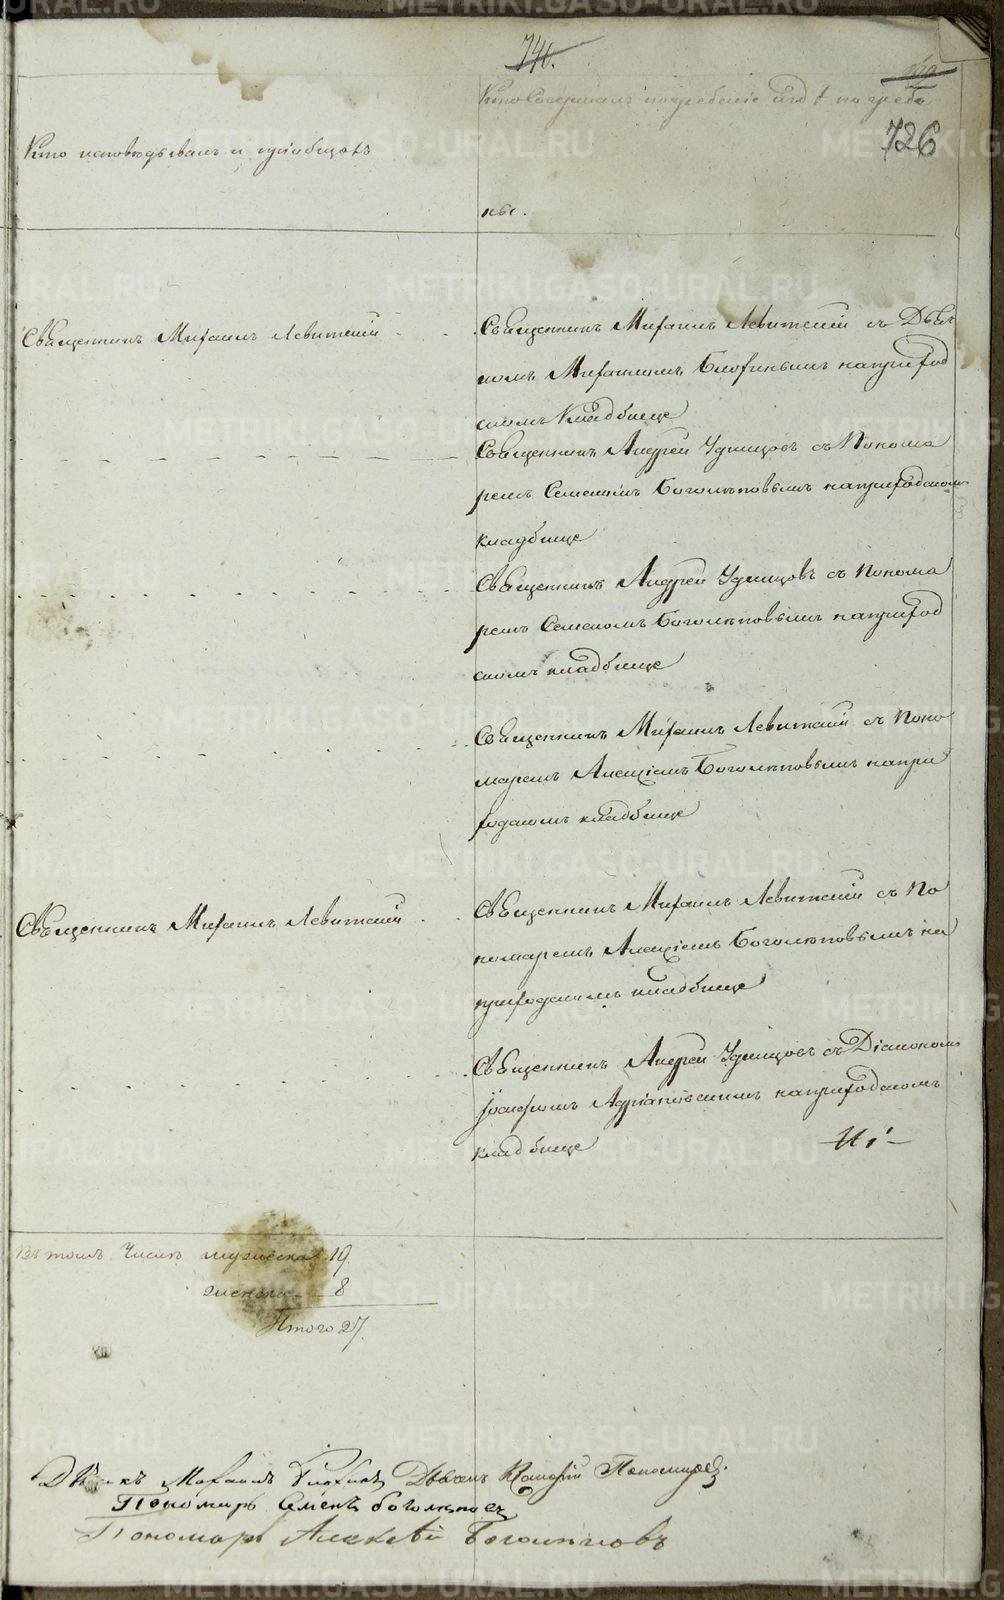 741.
Кто совершалъ погребенiе и гдѣ погребе
726
Кто исповѣдывалъ и прiобщалъ
ны.
Священникъ Михаилъ Левитскiй
Священникъ Михаилъ Левитскiй съ Дьяч
комъ Михаиломъ наприход
скомъ Кладбище
Священникъ Андрей Удинцовъ съ Понома
ремъ Семеномъ Боголѣповымъ наприходскомъ
кладбище
Священникъ Андрей Удинцовъ съ Понома
ремъ Семеномъ Боголѣповымъ наприход
скомъ кладбище
Священникъ Михаилъ Левитскiй съ Поно
маремъ Алексiемъ Боголѣповымъ напри
ходскомъ кладбище
Священникъ Михаилъ Левитскiй
Священникъ Михаилъ Левитскiй съ По
номаремъ Алексiемъ Боголѣповымъ на
приходскомъ кладбище
Священникъ Андрей Удинцовъ съ Дiакономъ
Iосифомъ Адрiановскимъ наприходскомъ
кладбище
Въ томъ числѣ мужеска 19.
женска 8
Итого 27.
Дьячекъ Михаилъ Дьячекъ
Пономарь Семенъ Боголѣповъ
Пономарь Алексѣй Боголѣповъ
METRIKI.GASO-URAL.RU